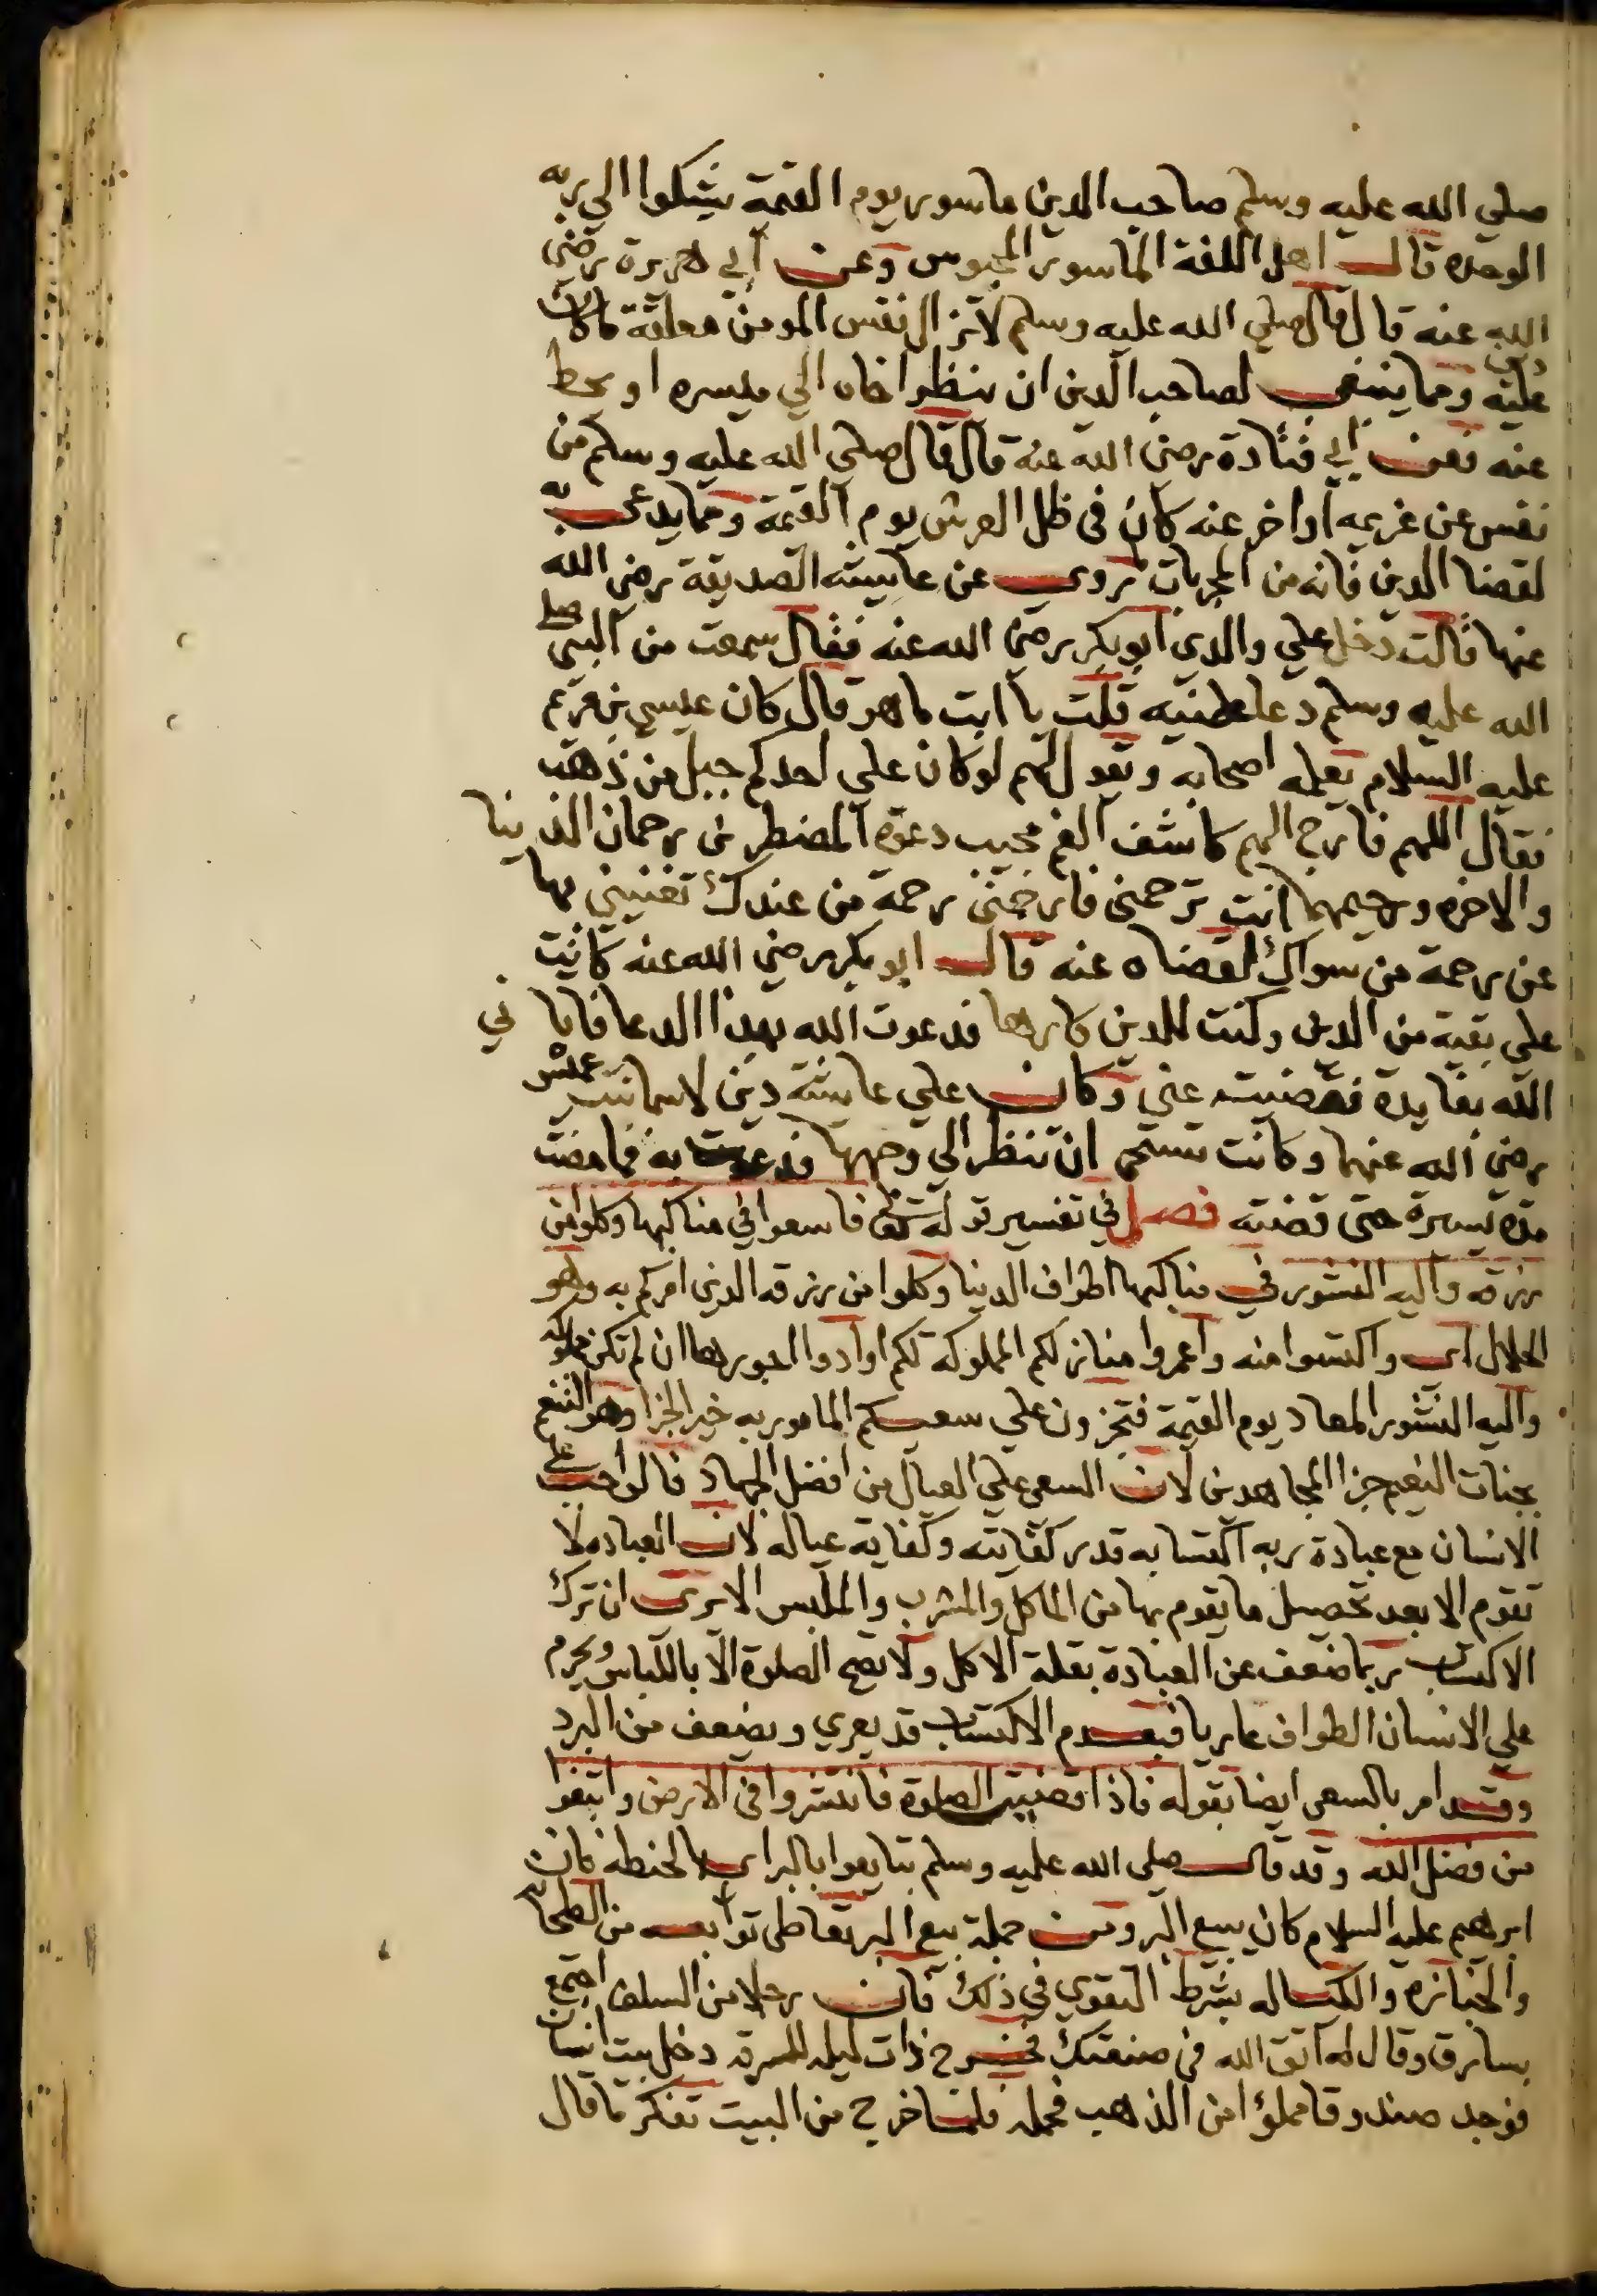 صلي الله عليه وسلم صاحب الدين ماسور يوم القيمة يشكوا الي ربه
الوحده قال اهل اللغة الماسور المحبوس وعن ابي هريرة رضي
الله عنه قال قال صلي الله عليه وسلم لا تزال نفس المومن معلقة ما كان
عليه دين ومما ينبغي لصاحب الدين ان ينظر اخاه الي ميسره او يحط
عنه فعن ابي قتادة رضي الله عنه قال قال صلي الله عليه وسلم من
نفس عن غريمه او اخر عنه كان في ظل العرش يوم القيمة ومما يدعي به
لقضا الدين فانه من المجربات مروي عن عايشه الصديقة رضي الله
عنها قالت دخل علي والدي ابو بكر رضي الله عنه فقال سمعت من النبي صلي
الله عليه وسلم دعا علمنيه قلت يا ابت ما هو قال كان عيسي بن مريم
عليه السلام يعلمه اصحابه ويقول لهم لو كان علي احدكم جبل من ذهب
فقال اللهم فارج الهم كاشف الغم مجيب دعوة المضطرين رحمان الدنيا
والاخره ورحيمهما انت ترحمني فارحمني رحمة من عندك تغنيني بها
عن رحمة من سواك لقضاه عنه قال ابو بكر رضي الله عنه كانت
علي بقية من الدين وكنت للدين كارها فدعوت الله بهذا الدعا فاتاني
الله بفايدة فقضيت عني وكان علي عايشة دين لاسما بنت عميس
رضي الله عنها وكانت تستحي ان تنظر الي وجهها فدعوت به فما مضت
مدة يسيرة حتى قضته فصل في تفسير قوله تعالي فامشوا في مناكبها وكلوا من
رزقه واليه النشور في مناكبها اطراف الدنيا وكلوا من رزقه الذي امركم به وهو
الحلال اي واكتسوا منه واعمروا منازلكم المملوكة لكم او ادوا اجورها ان لم تكن مملوكة
واليه النشور المعاد يوم القيمة فتجزون علي سعيكم المامور به خير الجزا وهو التنعم
بجنات النعيم جزا المجاهدين لان السعي علي العيال من افضل الجهاد فالواجب علي
الانسان مع عبادة ربه اكتسابه قدر كفايته وكفاية عياله لان العباده لا
تقوم الا بعد تحصيل ما يقوم بها من الماكل والمشرب والملبس الا ترى ان ترك
الاكتساب ربما ضعف عن العبادة بقلة الاكل ولا تصح الصلوة الا باللباس ويحرم
علي الانسان الطواف عاريا فبعدم الاكتساب قد يعري ويضعف من البرد
وقد امر بالسعي ايضا بقوله فاذا قضيت الصلوة فانتشروا في الارض وابتغوا
من فضل الله وقد قال صلى الله عليه وسلم تبايعوا بالبر اي الحنطه فان
ابرهيم عليه السلام كان يبيع البر ومن جملة بيع البر تعاطى توابعه من الطحانه
والخبازه والكياله بشرط التقوي في ذلك فان رجلا من السلف اجتمع
بسارق وقال له اتق الله في صنعتك فخرج ذات ليله للسرقه دخل بيت انسان
فوجد صندوقا مملؤا من الذهب فحمله فلما خرج من البيت تفكر ما قال